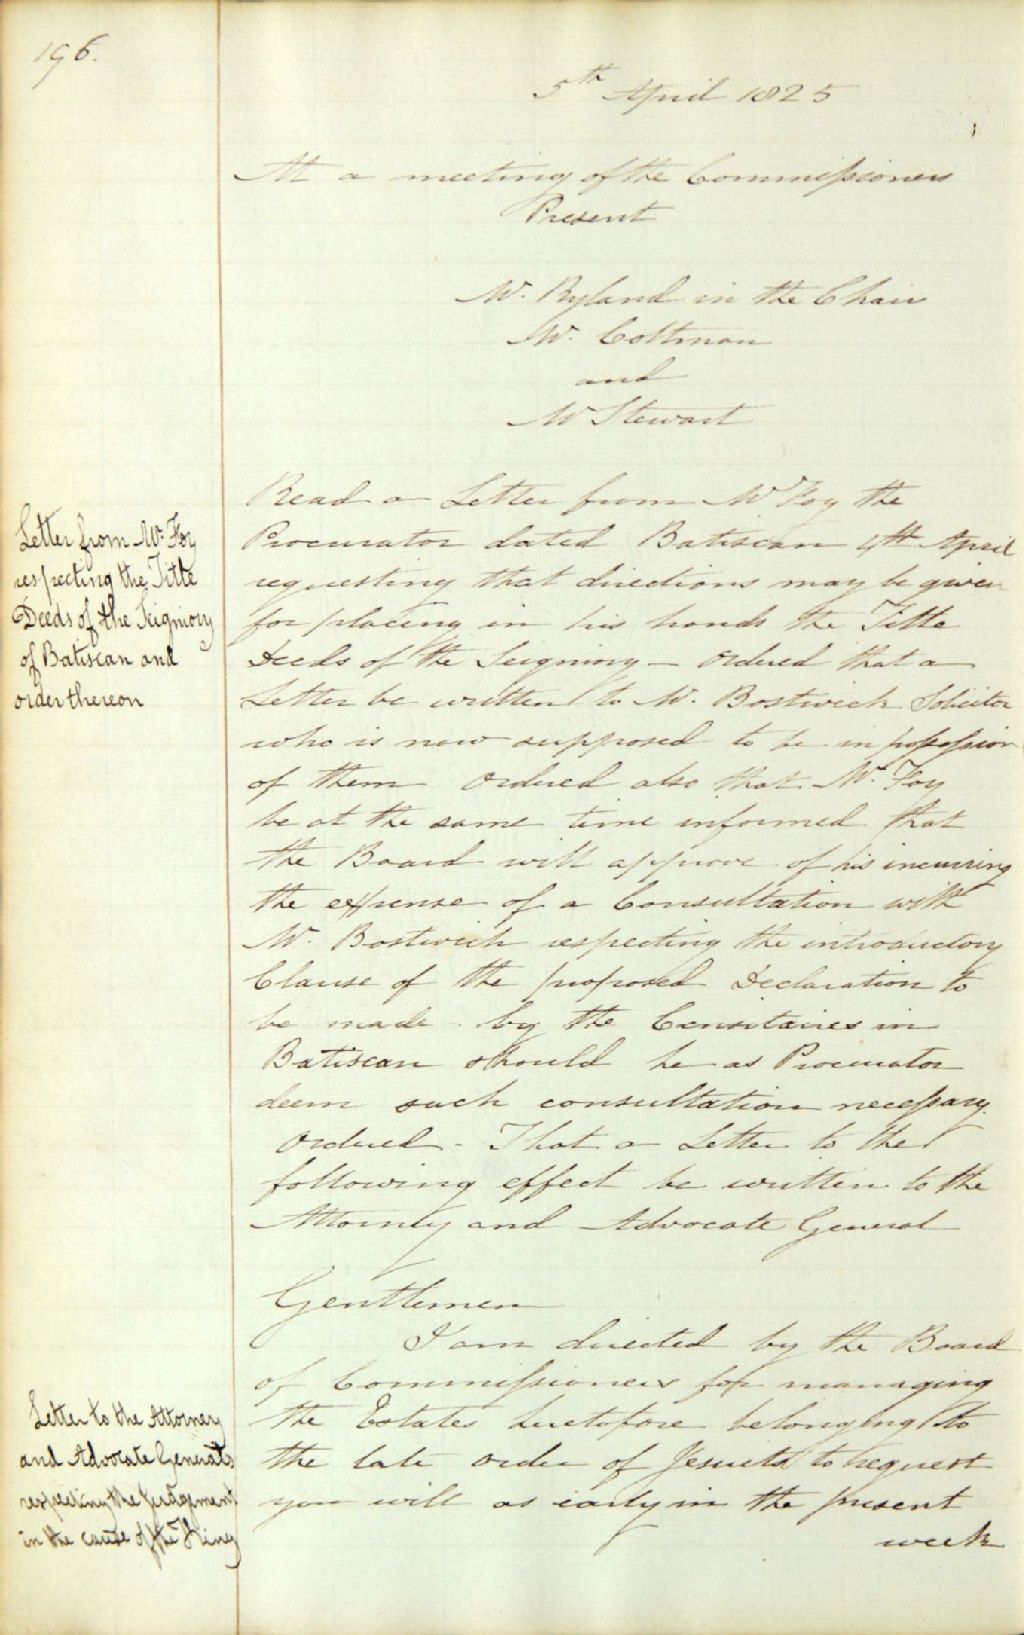 196.
5th April 1825
At a meeting of the Commissioners
Present
Mr. Ryland in the Chair
Mr. Coltman
and
Mr Stewart
Letter from Mr. Foy
respecting the Title
Deeds of the Seigniory
of Batiscan and
order thereon
Read a Letter from Mr Foy the
Procurator dated Batiscan 4th April
requesting that directions may be given
for placing in his hands the Title
Deeds of the Seigniory – ordered that a
Letter be written to Mr. Bostwick Solicitor
who is now supposed to be in possession
of them ordered also that Mr. Foy
be at the same time informed that
the Board will approve of his incurring
the expense of a Consultation with
Mr. Bostwick respecting the introductory
Clause of the proposed Declaration to
be made by the Censitaires in
Batiscan should he as Procurator
deem such consultation necessary.
Ordered – That a Letter to the
following effect be written to the
Attorney and Advocate General
Gentlemen
I am directed by the Board
of Commissioners for managing
the Estates heretofore belonging to
the late order of Jesuits to request
you will as early in the present
week
Letter to the Attorney
and Advocate Generals
respecting the Judgement
in the cause of the King